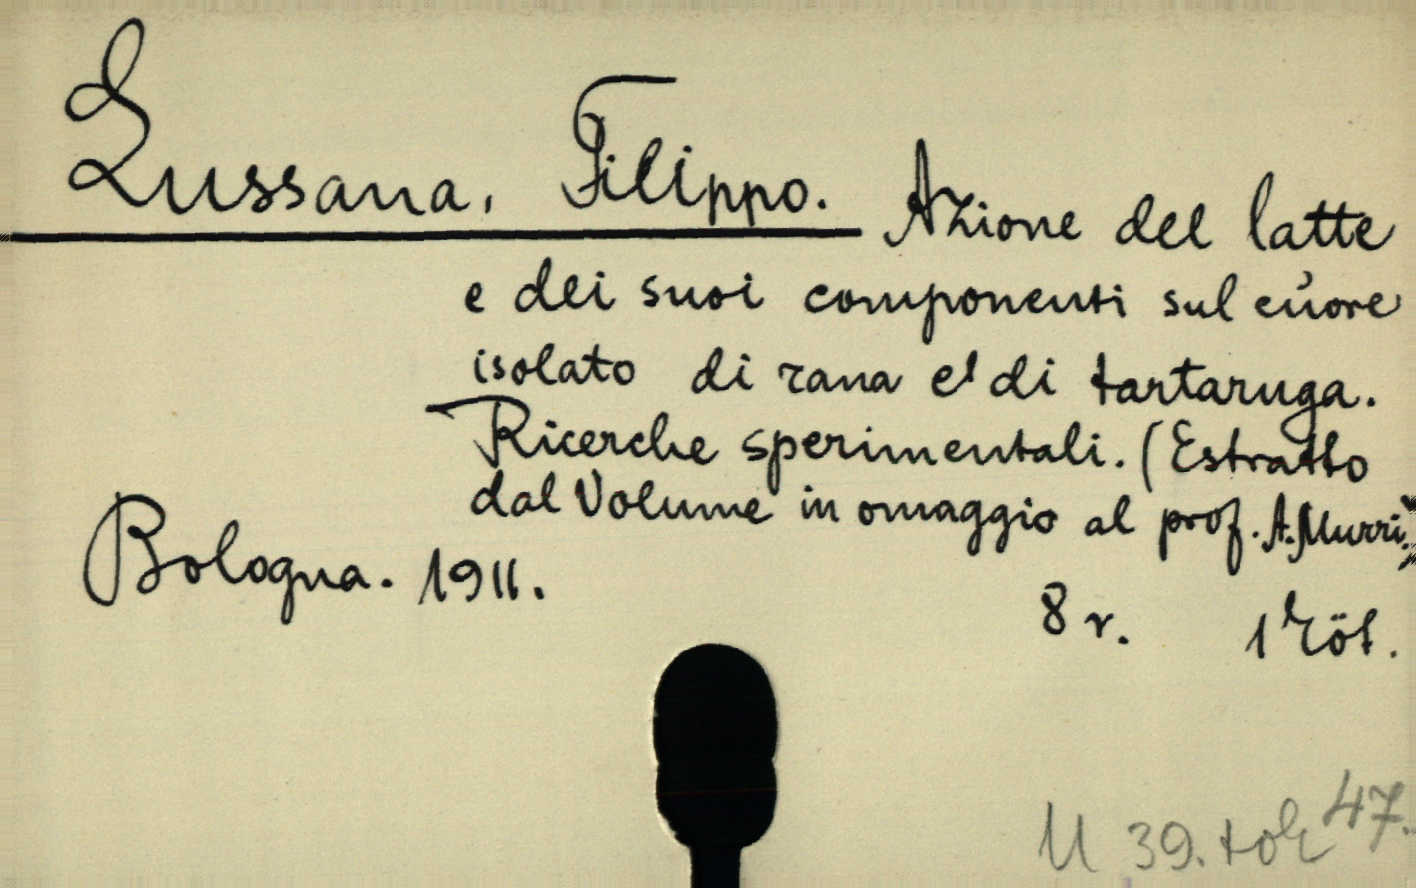 Lussana, Filippo. Azione del latte
e dei suoi componenti sul cuore
isolato di rana e di tartaruga.
Ricerche sperimentali. (Estratto
dal Volume in omaggio al prof. A. Murri.)
Bologna. 1911.
8r. 1 köt.
U 39. tok 47.